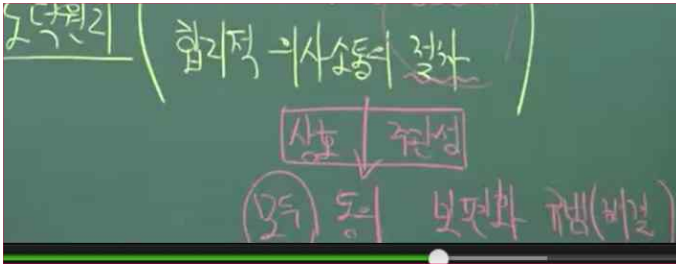 도덕원리 (합리적 의사소통의 절차)
상호 주관성
모두 동의 보편화 규범(비결)